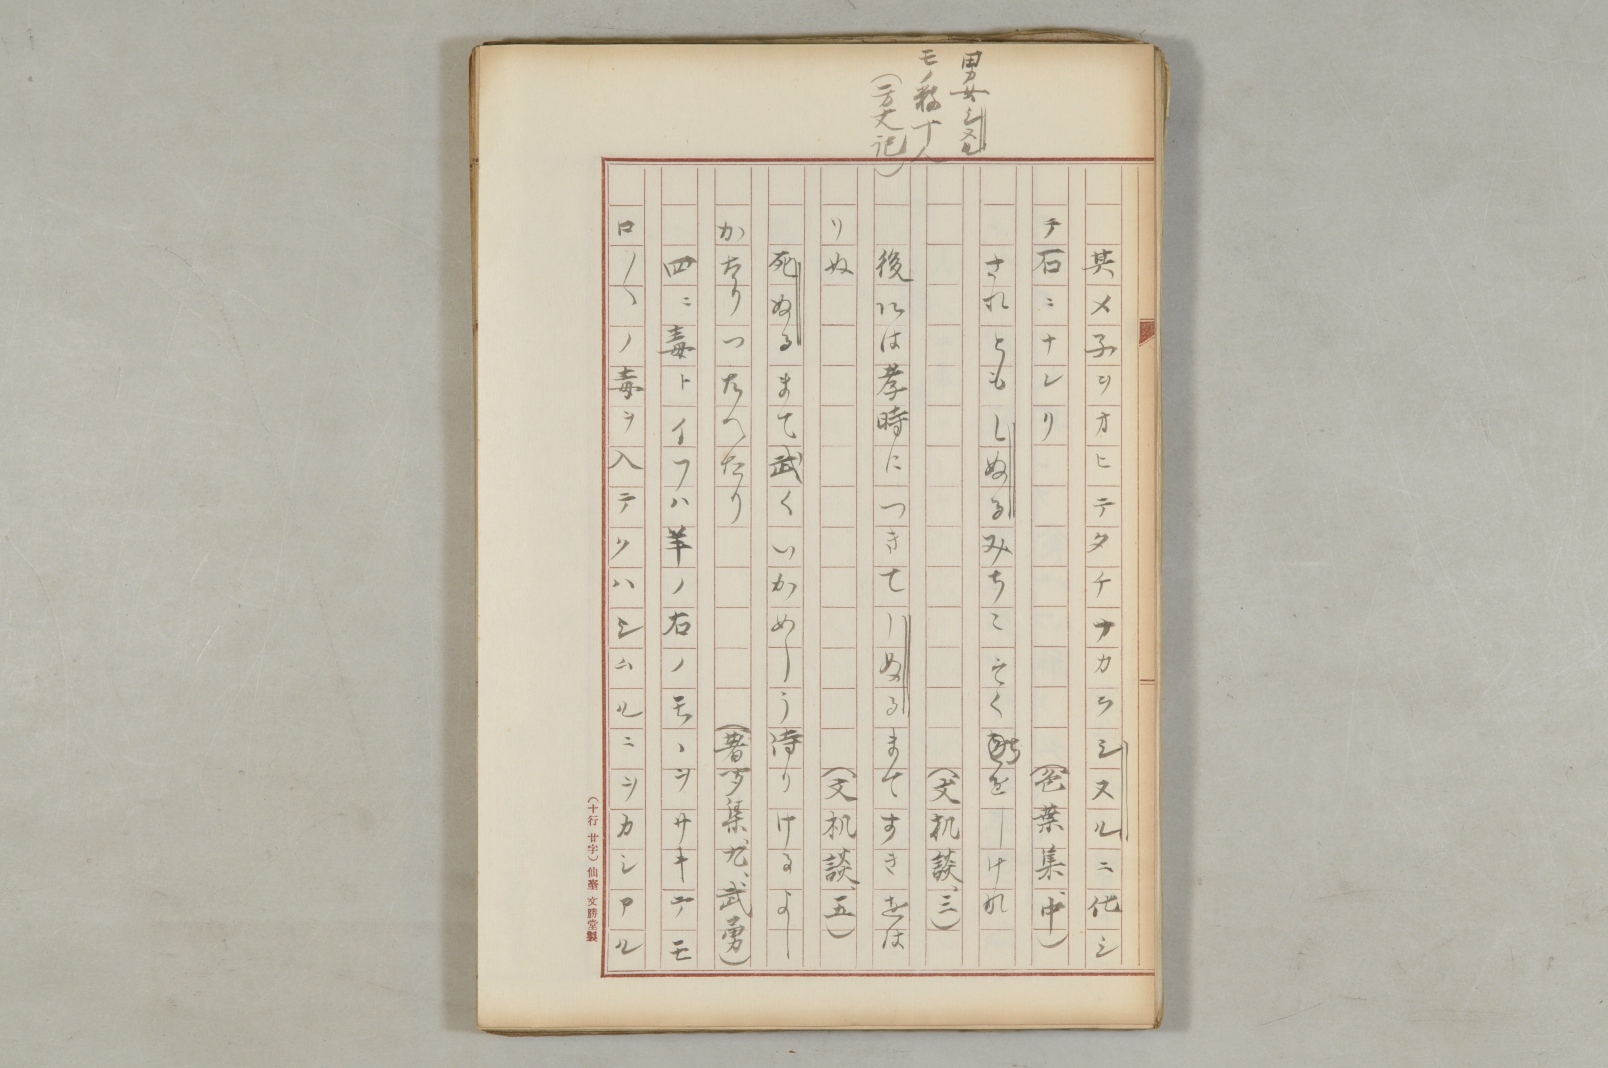 男女シヌル
モノ数十人
(方丈記)
其メ子ヲオヒテタチナカラシヌルニ化シ
テ石ニナレリ
(色葉集、中)
されともしぬるみちこそく ちをしけれ
(文机談、三)
後には孝時につきてしぬるまてすきをは
りぬ
(文机談、五)
死ぬるまて武くいかめしう侍りけるよし
かたりつたへたり
(著聞集、九、武勇)
四ニ毒トイフハ羊ノ右ノモヽヲサキテモ
ロ〳〵ノ毒ヲ入テクハシムルニヲカシアル
(十行 廿字)仙臺 文勝堂製